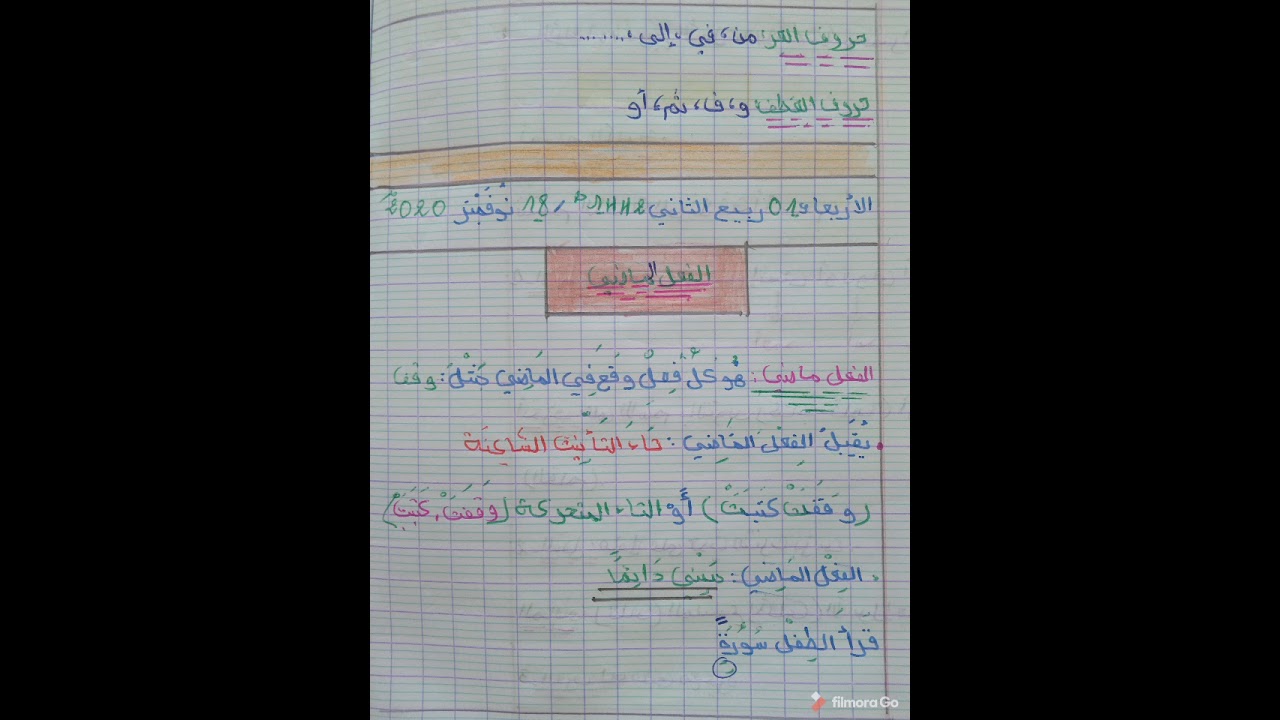 حروف الجر: من، في، إلى، ........
حروف العطف: و، ف، ثم، أو
الأربعاء 01 ربيع الثاني 1442 هـ / 18 نُوفَمْبر 2020 م
الفعل الماضي
الفعل ماضي: هُوَ كُلُّ فِعلْ وقَعَ فِي المَاضِي مَثْلَ: وقف
• يُقبَلُ الفِعْلَ المَاضِي: تَاءَ التَأنِيث السَّاكِنَة
(وقَفَتْ كتبَتْ) أَو التاء المتحركة (وَقَفتَ، كَتَبتَ)
• الفِعْل المَاضِي: مَبْنِي دَائِمًا
قرأ الطِفْل سُورَةً
filmoraGo